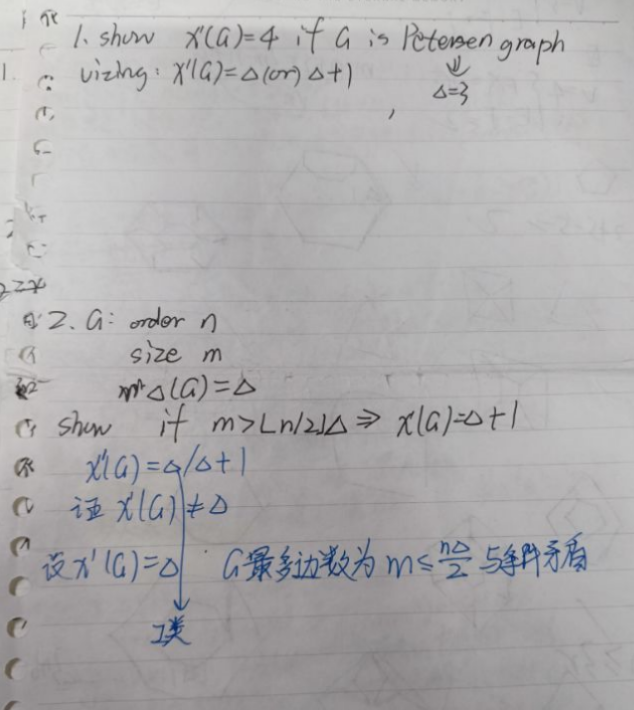 1. show χ'(G)=4 if G is Petersen graph
Vizing: χ'(G)=Δ(or) Δ+1
⇓
Δ=3
2. G: order n
size m
Δ(G)=Δ
show if m>⌊n/2⌋Δ ⇒ χ(G)=Δ+1
χ'(G)=Δ/Δ+1
证 χ'(G)≠Δ
设χ'(G)=Δ G最多边数为 m≤nΔ/2 与条件矛盾
I类